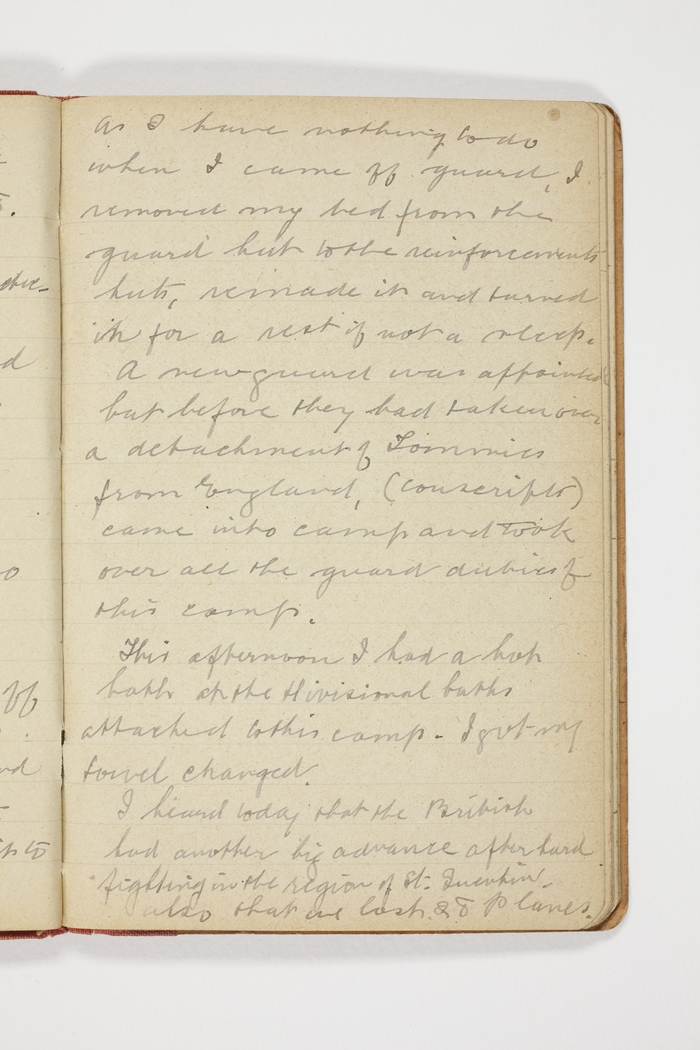 as I have nothing to do
when I came off guard, I
removed my bed from the
guard hut to the reinforcements
huts, remade it and turned
in for a rest if not a sleep.
A new guard was appointed
but before they had taken over
a detachment of Tommies
from England, (conscripts)
came into camp and took
over all the guard duties of
this camp.
This afternoon I had a hot
bath at the Divisional baths
attached to this camp - I got my
towel changed.
I heard today that the British
had another big advance after hard
fighting in the region of St. Quentin.
also that we lost 28 Planes.